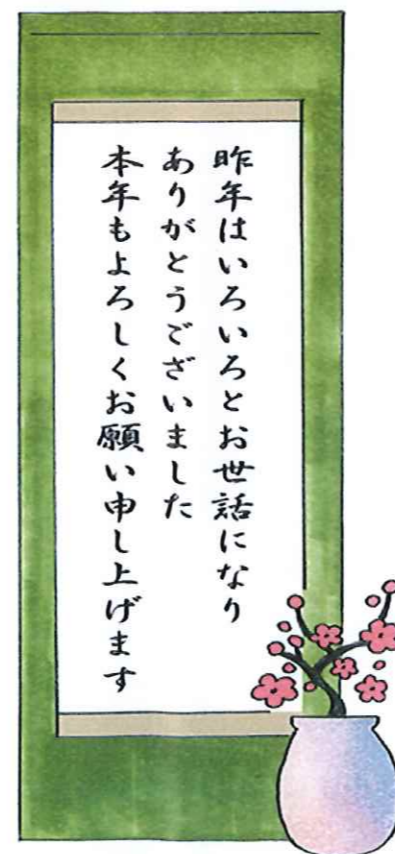 昨年はいろいろとお世話になり
ありがとうございました
本年もよろしくお願い申し上げます